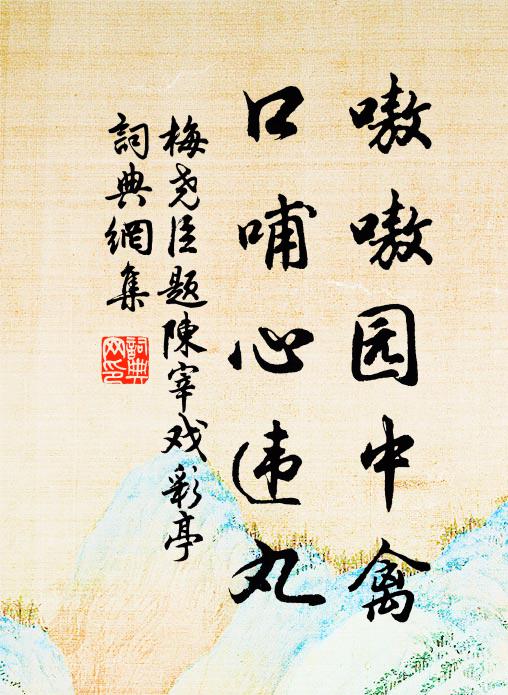 嗷嗷园中禽
口哺心违丸
梅尧臣题陳宰戏彩亭
詞典網集
詞典網印